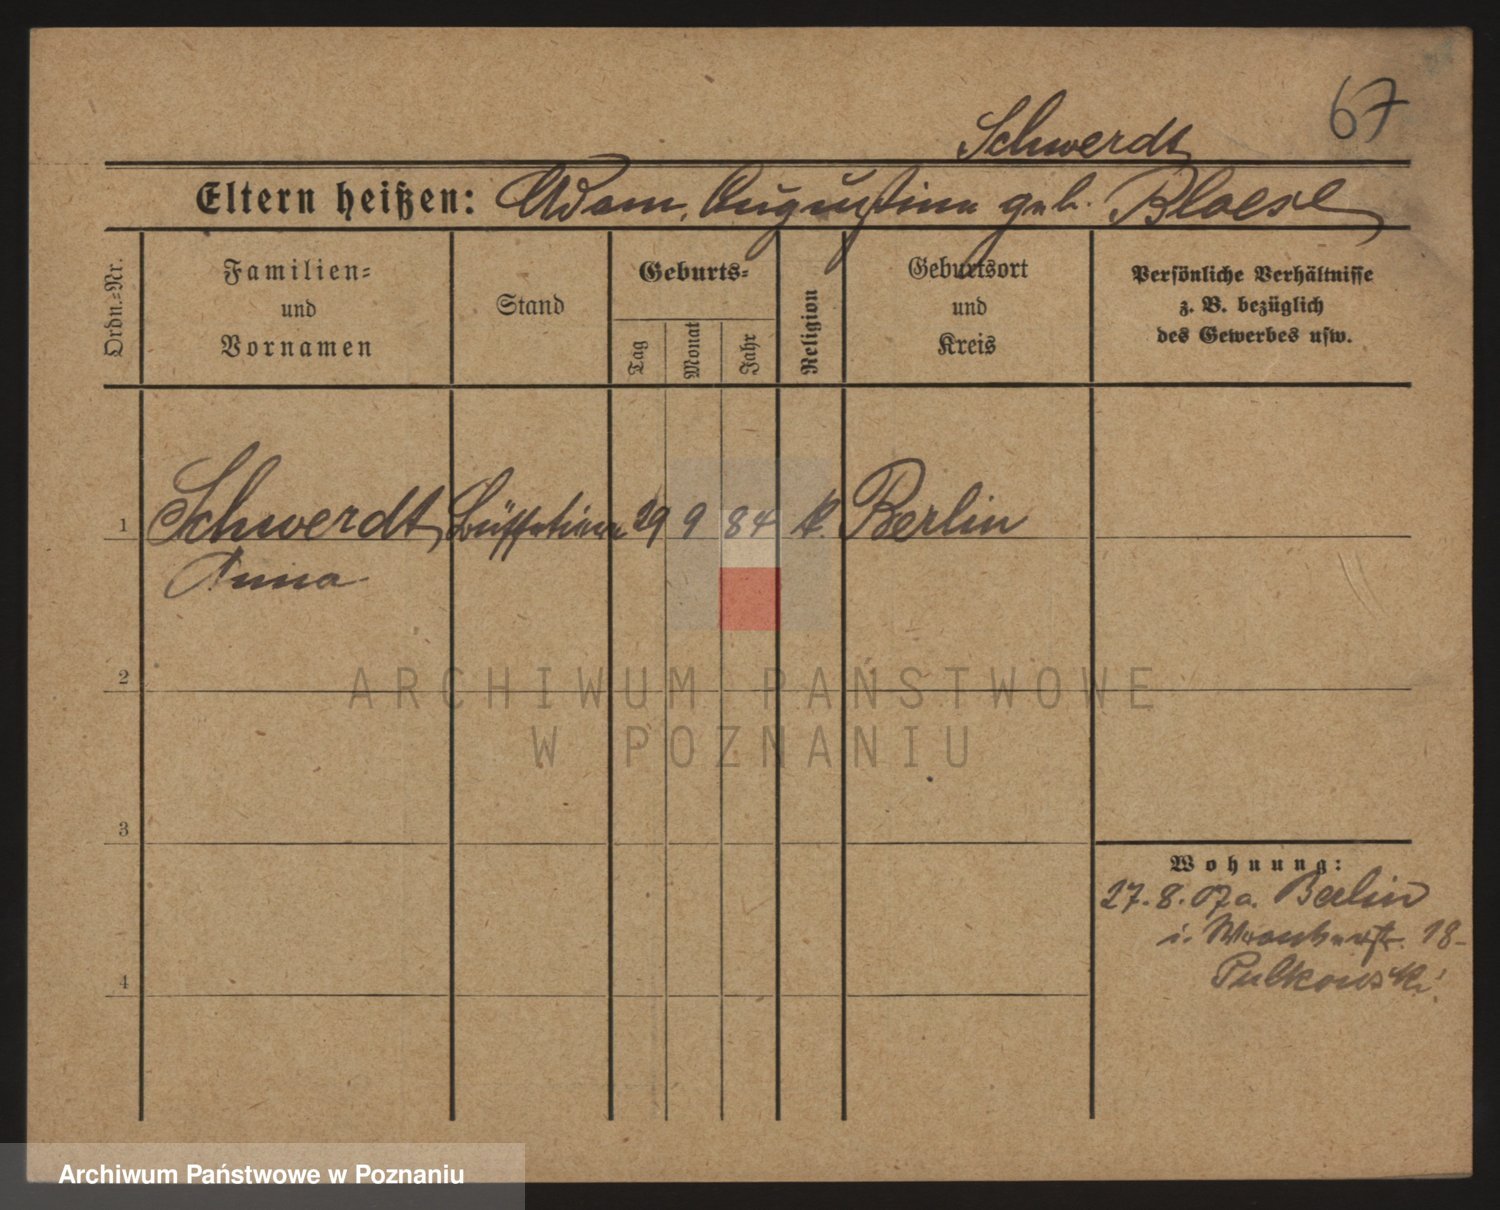 67
Schwerdt
Eltern heißen: Adam, Augustine geb. Bloese
Ordn.=Nr.
Familien=
und
Vornamen
Stand
Geburts=
Tag
Monat
Jahr
Religion
Geburtsort
und
Kreis
Persönliche Verhältnisse
z. B. bezüglich
des Gewerbes usw.
1 Schwerdt 9 84 k. Berlin
Anna
2
ARCHIWUM PAŃSTWOWE
W POZNANIU
3
Wohnung:
27.8.07 a. Berlin
i. 18
Pulkowski
4
Archiwum Państwowe w Poznaniu